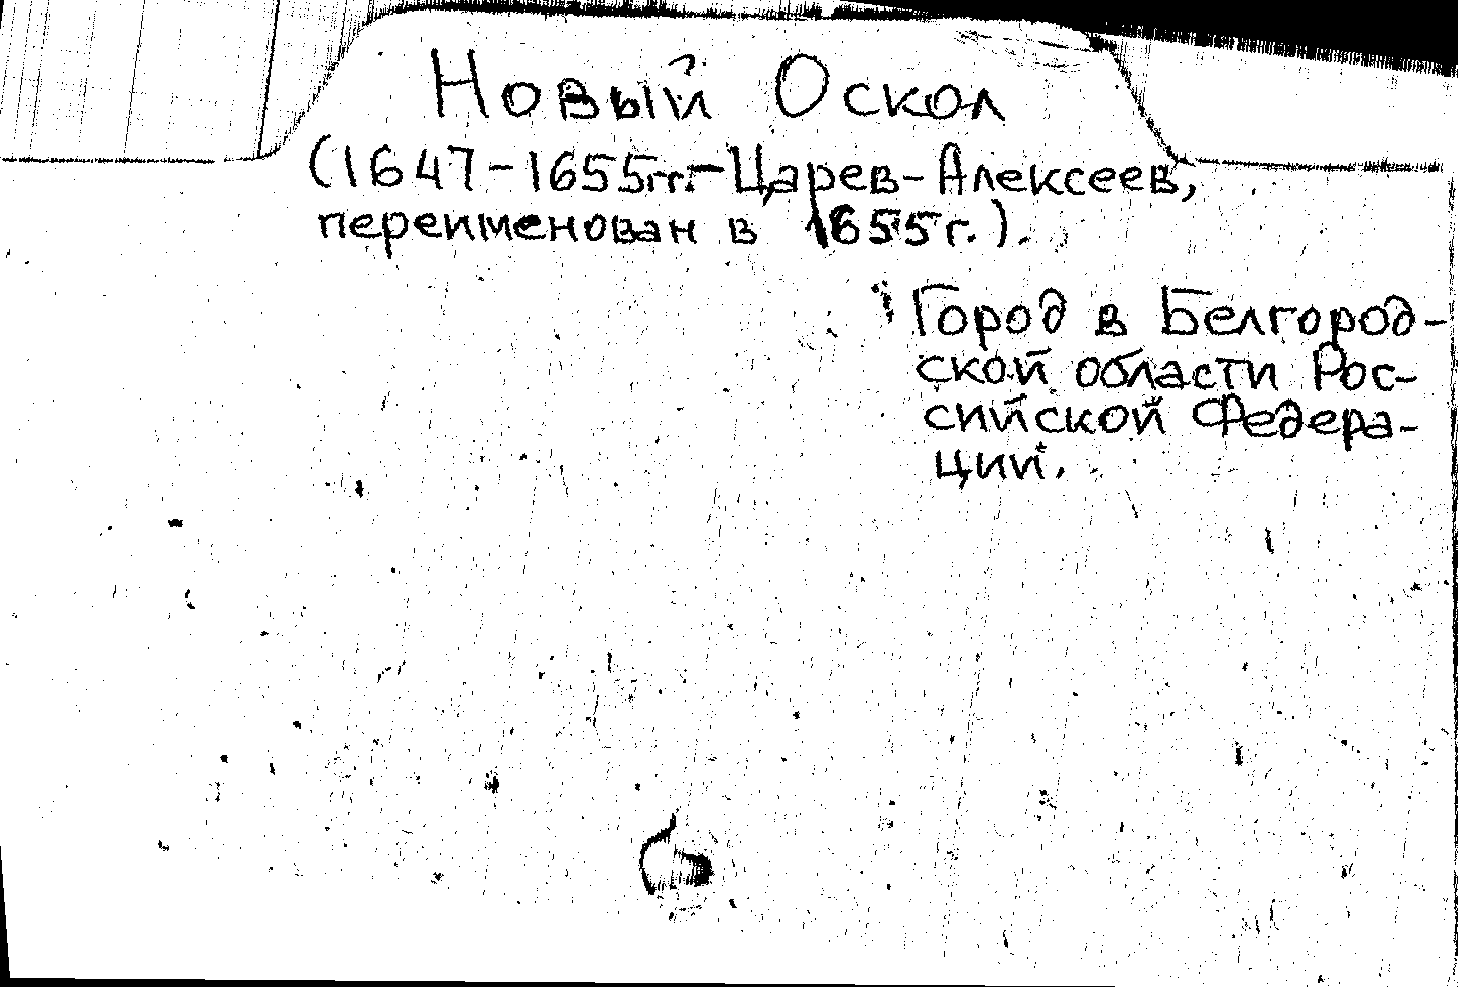 Новый Оскол
(1647-1655гг.-Царев-Алексеев,
переименован в 1655г.).
Город в Белгород-
ской области Рос-
сийской Федера-
ции.